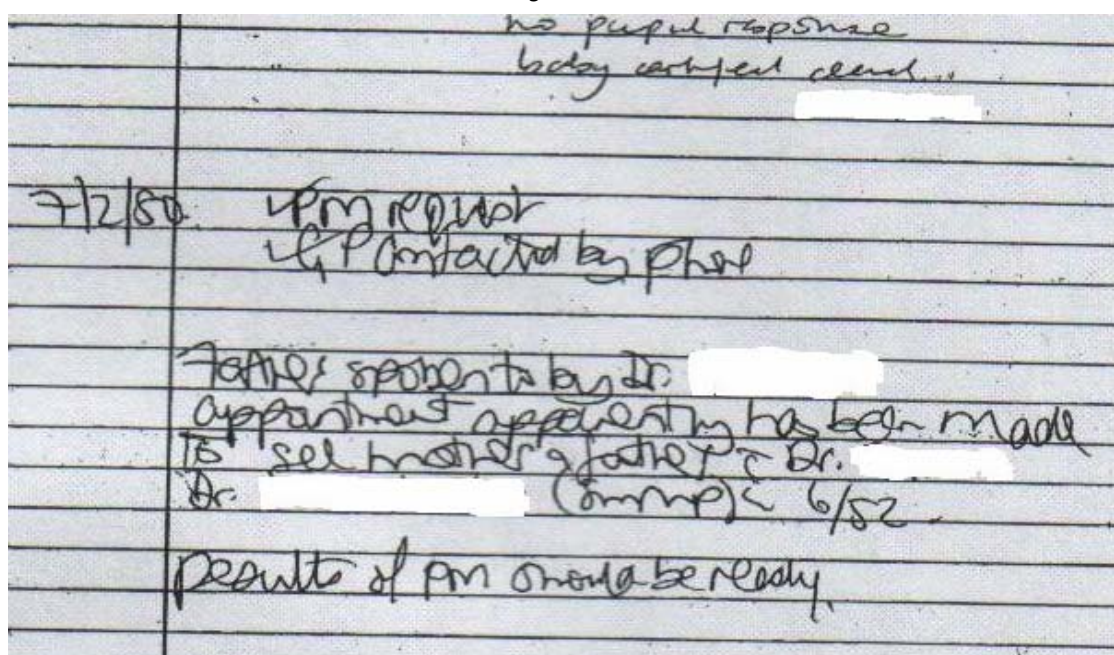 no pupil response
baby certified dead...
7/2/80 ✓ PM request
✓ GP contacted by phone
Father spoken to by Dr.
appointment apparently has been made
to see mother & father c̄ Dr.
Dr. ( ) 6/52.
Results of PM should be ready.